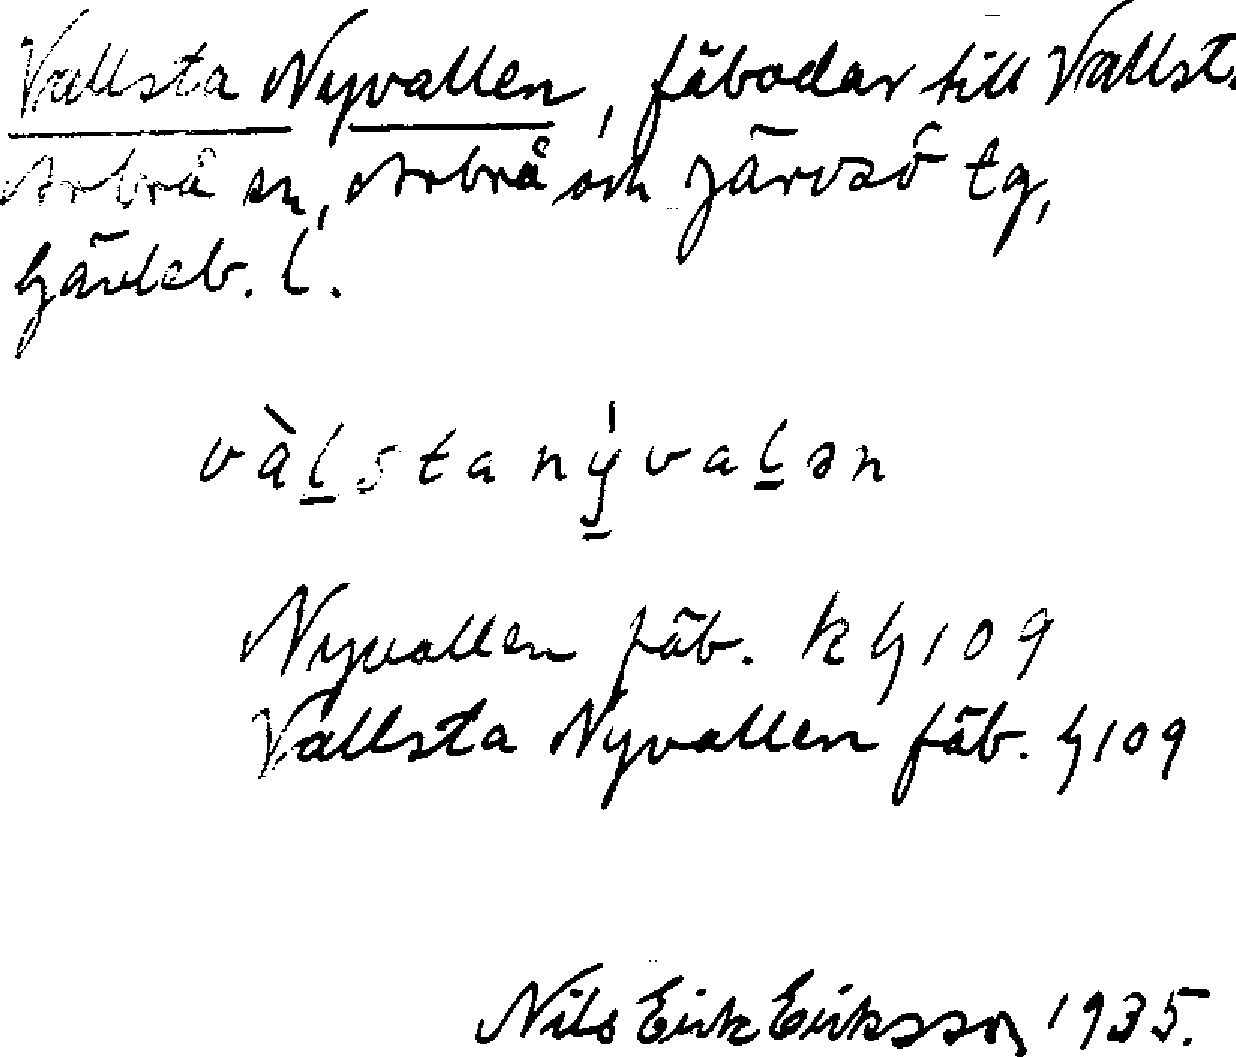 Vallsta Nyvallen, fäbodar till Vallst.
Arbrå sn, Arbrå och Järvsö tg,
Gävleb. l.
vàḻstaný̱vaḻən
Nyvallen fäb. k G109
Vallsta Nyvallen fäb. G109
Nils Erik Eriksson 1935.